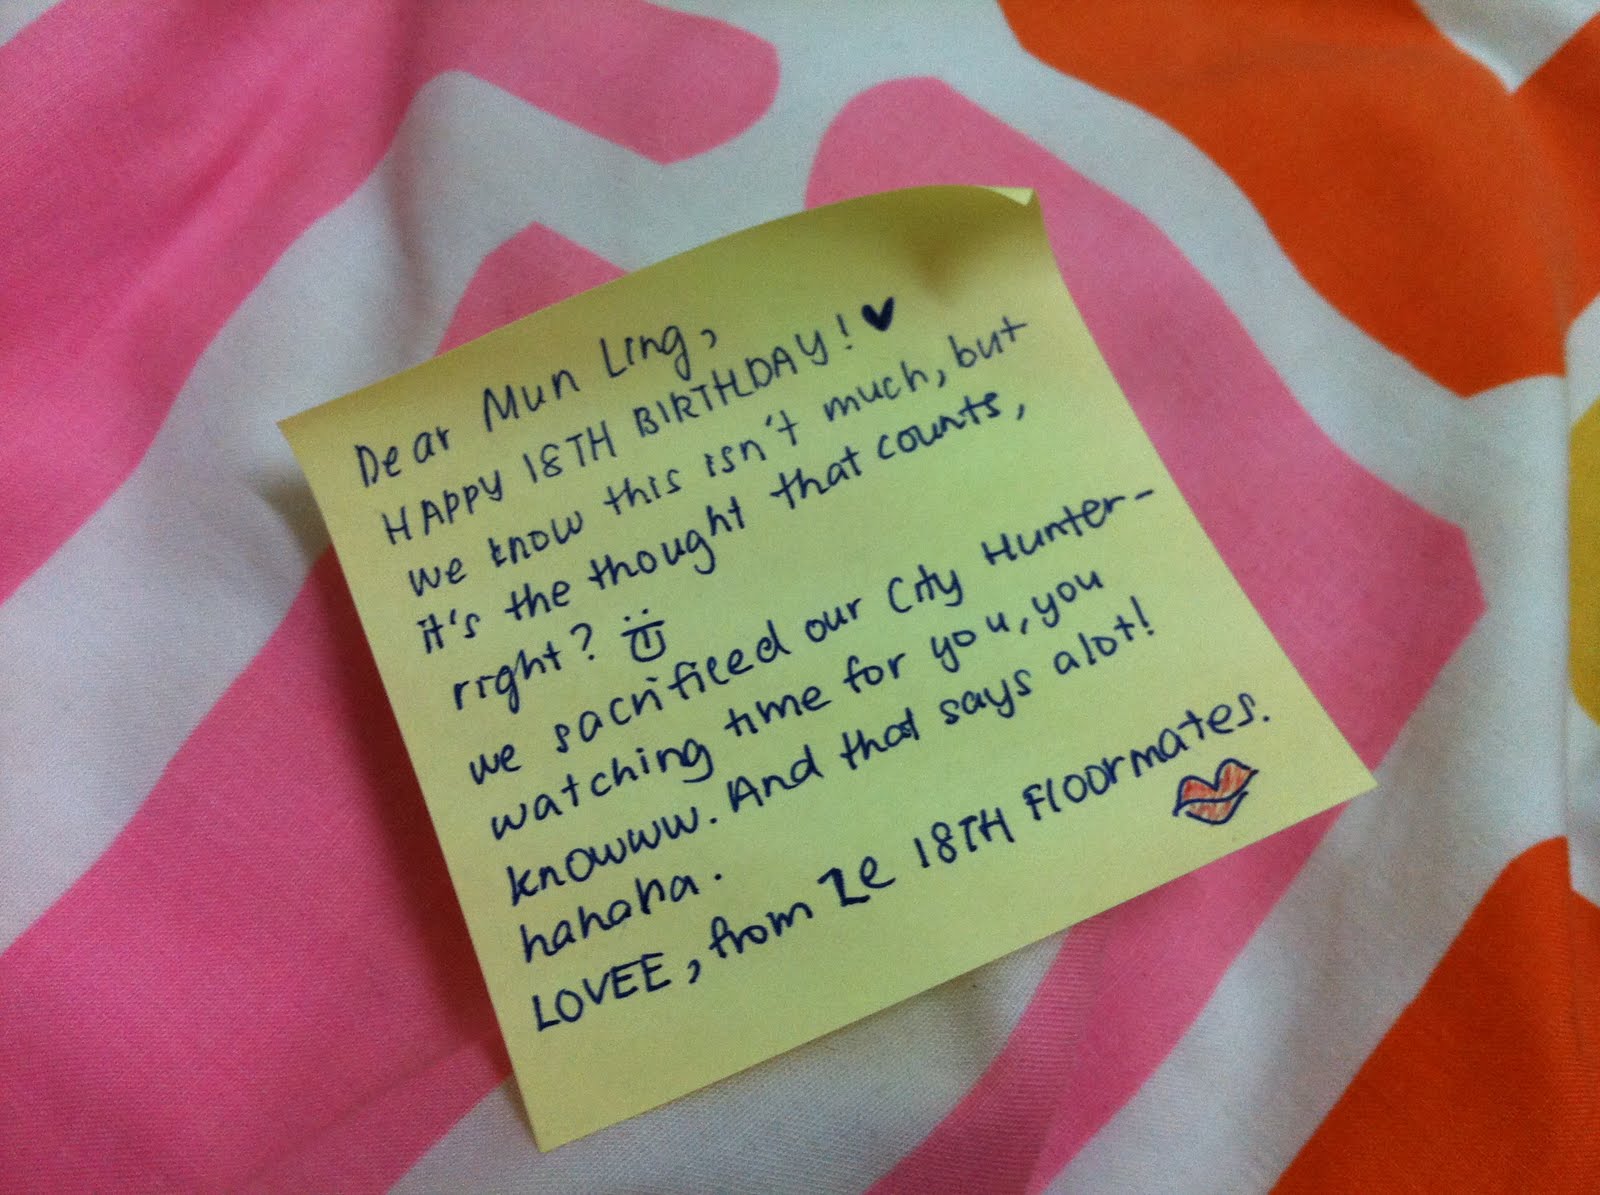 Dear Mun Ling,
HAPPY 18TH BIRTHDAY! ♥
we know this isn't much, but
it's the thought that counts,
right?
we sacrificed our City Hunter-
watching time for you, you
knowww. And that says alot!
hahaha.
LOVEE, from ze 18TH Floormates.